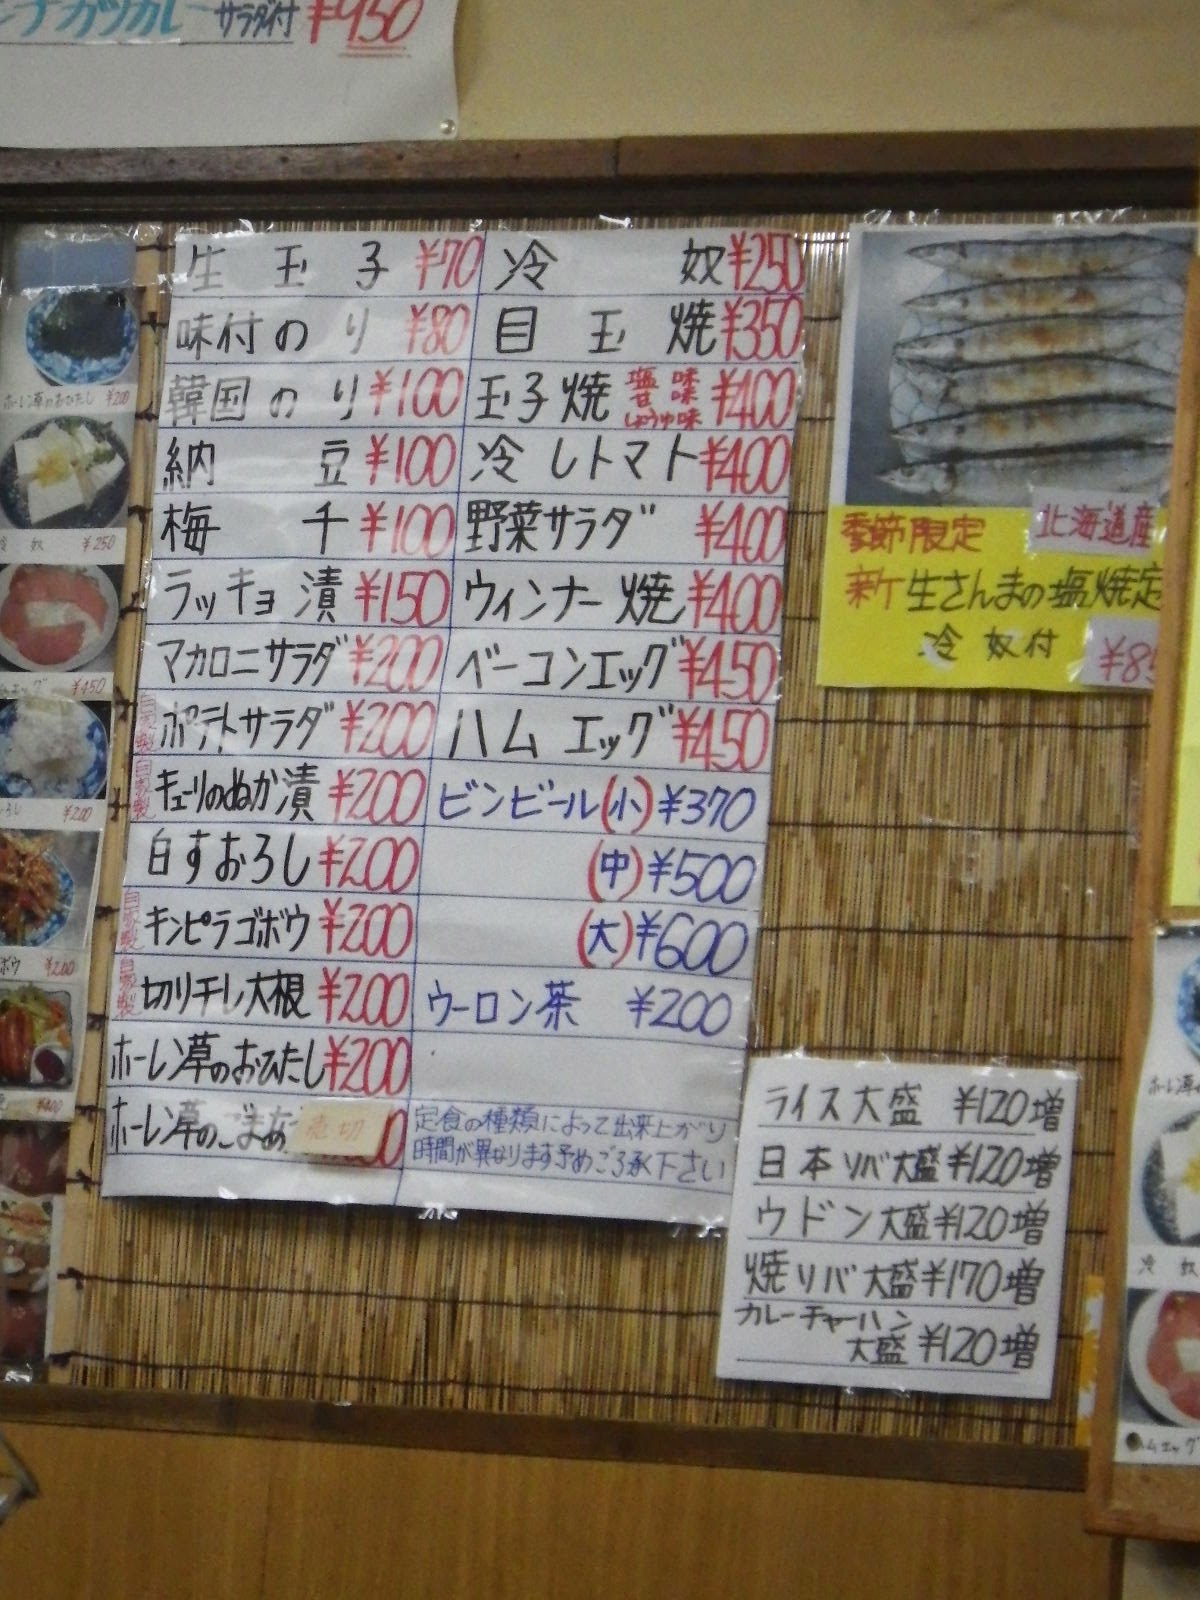 ナカツカレー サラダ付 ¥950
生玉子 ¥70
味付のり ¥80
韓国のり ¥100
納豆 ¥100
梅干 ¥100
ラッキョ漬 ¥150
マカロニサラダ ¥200
自家製 ポテトサラダ ¥200
自家製 キューリのぬか漬 ¥200
白すおろし ¥200
自家製 キンピラゴボウ ¥200
自家製 切り干し大根 ¥200
ホーレン草のおひたし ¥200
ホーレン草のごまあ 売切
冷奴 ¥250
目玉焼 ¥350
玉子焼 塩味 甘味 しょうゆ味 ¥400
冷しトマト ¥400
野菜サラダ ¥400
ウィンナー焼 ¥400
ベーコンエッグ ¥450
ハムエッグ ¥450
ビンビール(小) ¥370
(中) ¥500
(大) ¥600
ウーロン茶 ¥200
定食の種類によって出来上がり
時間が異なります予めご了承下さい
季節限定 北海道産
新 生さんまの塩焼定
冷奴付
ライス大盛 ¥120増
日本ソバ大盛 ¥120増
ウドン大盛 ¥120増
焼ソバ大盛 ¥170増
カレーチャーハン
大盛 ¥120増
ホーレン草のおひたし ¥200
冷奴 ¥250
ムエッグ ¥450
ろし ¥200
ボウ ¥200
¥400
ホーレン草
冷奴
ハムエッグ